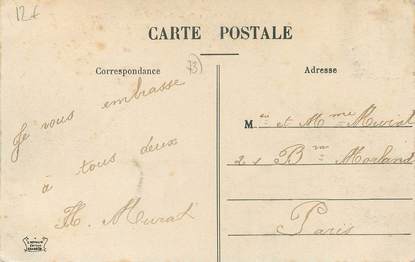 12€
CARTE POSTALE
Correspondance
73
Adresse
Je vous embrasse
à tous deux
H. Murat
Mr et Mme Murat
21 Bd Morland
Paris